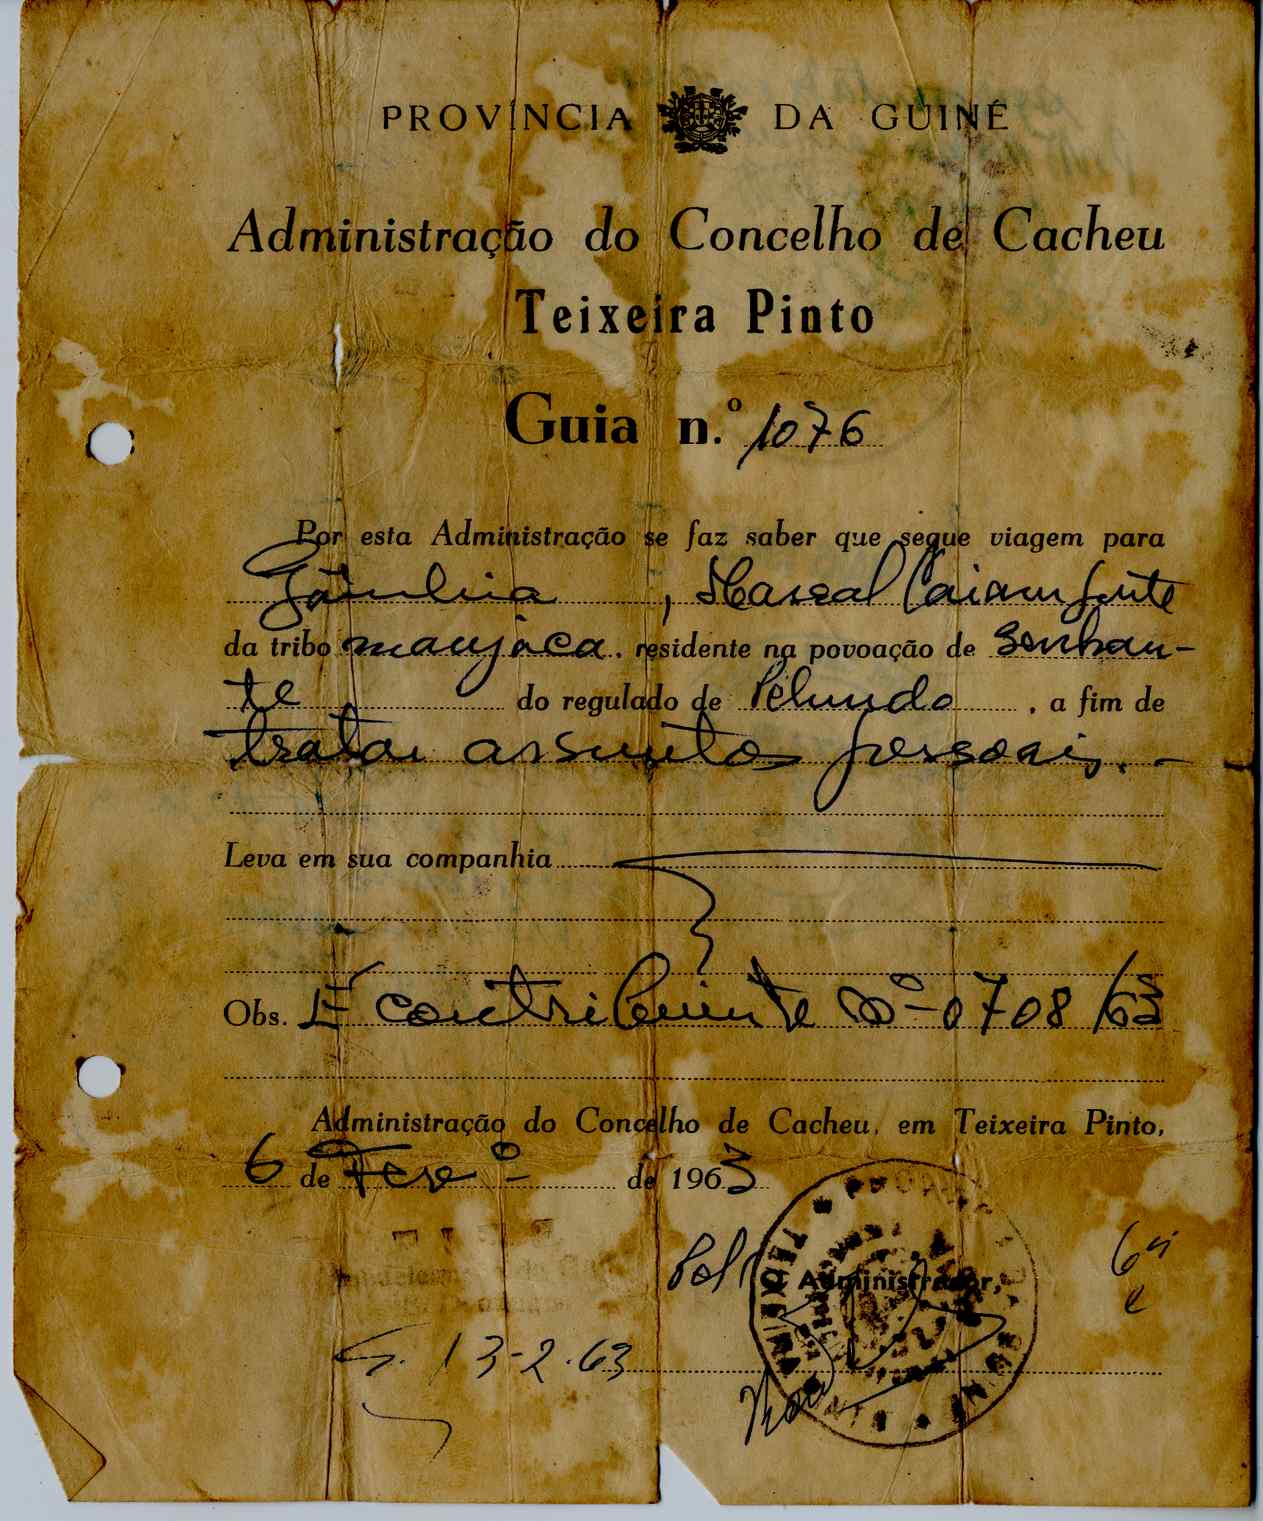 PROVÍNCIA DA GUINÉ
Administração do Concelho de Cacheu
Teixeira Pinto
Guia n.º 1076
Por esta Administração se faz saber que segue viagem para
Gâmbia, Marçal Caiamfute
da tribo manjaca, residente na povoação de Senhan-
te do regulado de Pelundo, a fim de
tratar assuntos pessoais.-
Leva em sua companhia
Obs. É contribuinte nº-0708/63
Administração do Concelho de Cacheu, em Teixeira Pinto,
6 de Fevº de 1963
Administrador,
13-2-63